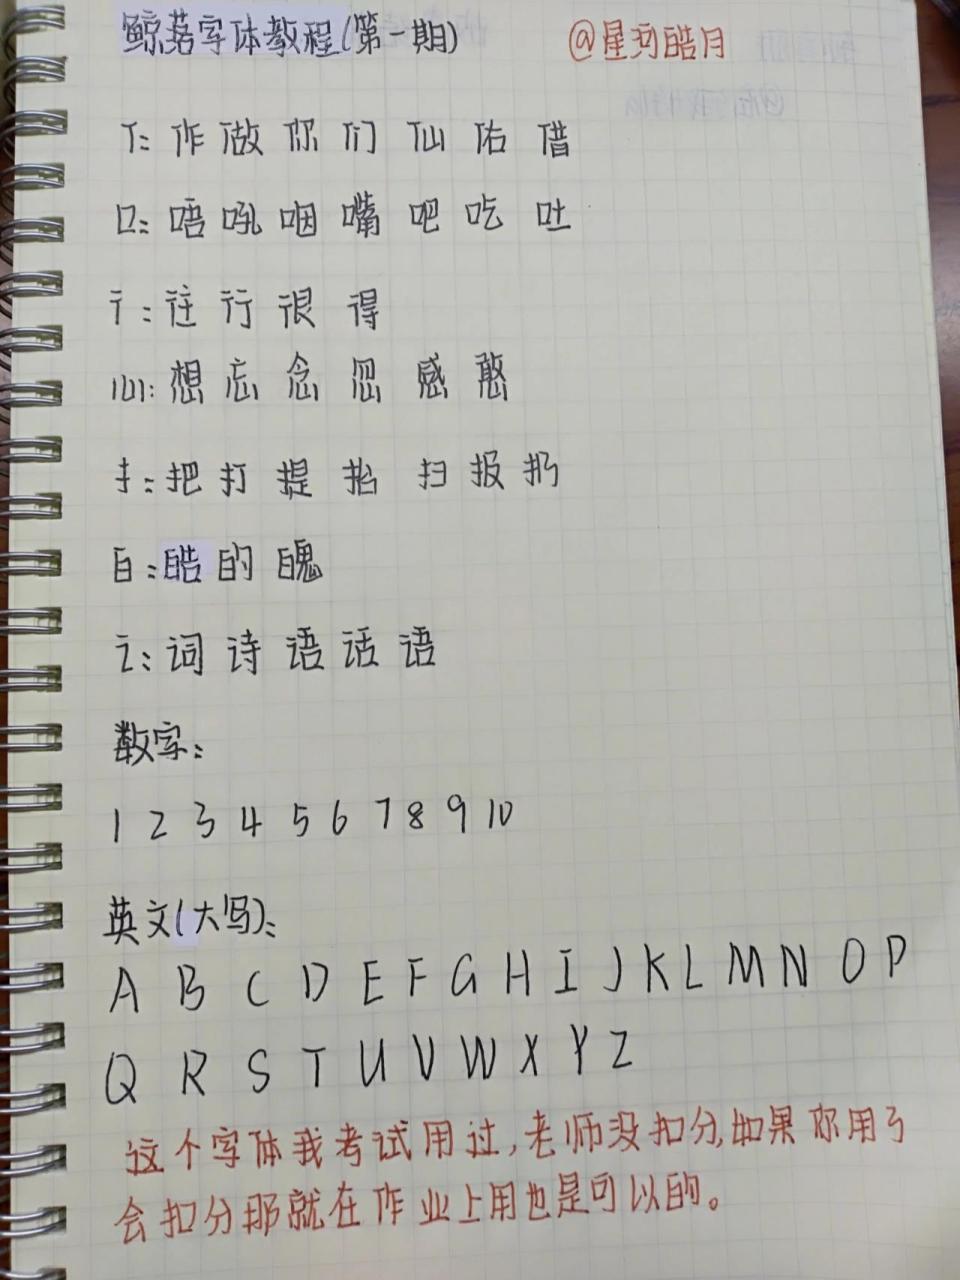 鲸落字体教程(第一期) @星河皓月
亻: 作 做 你 们 仙 佑 借
口: 唔 吼 咽 嘴 吧 吃 吐
彳: 往 行 很 得
心: 想 忘 念 忽 感 憨
扌: 把 打 提 抬 扫 报 扔
白: 皓 的 魄
讠: 词 诗 语 话 语
数字:
1 2 3 4 5 6 7 8 9 10
英文(大写):
A B C D E F G H I J K L M N O P
Q R S T U V W X Y Z
这个字体我考试用过,老师没扣分,如果你用了
会扣分那就在作业上用也是可以的。